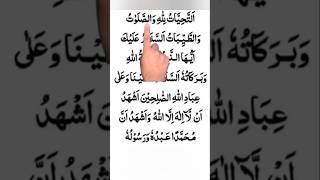 اَلتَّحِيَّاتُ لِلّٰهِ وَالصَّلَوٰتُ
وَالطَّيِّبَاتُ عَلَيْكَ
اَيُّهَا اللهِ
وَبَرَكَاتُهٗ وَعَلٰى
عِبَادِ اللهِ الصّٰلِحِيْنَ اَشْهَدُ
اَنْ لَّآ اِلٰهَ اِلَّا اللهُ وَاَشْهَدُ اَنَّ
مُحَمَّدًا عَبْدُهٗ وَرَسُوْلُهٗ